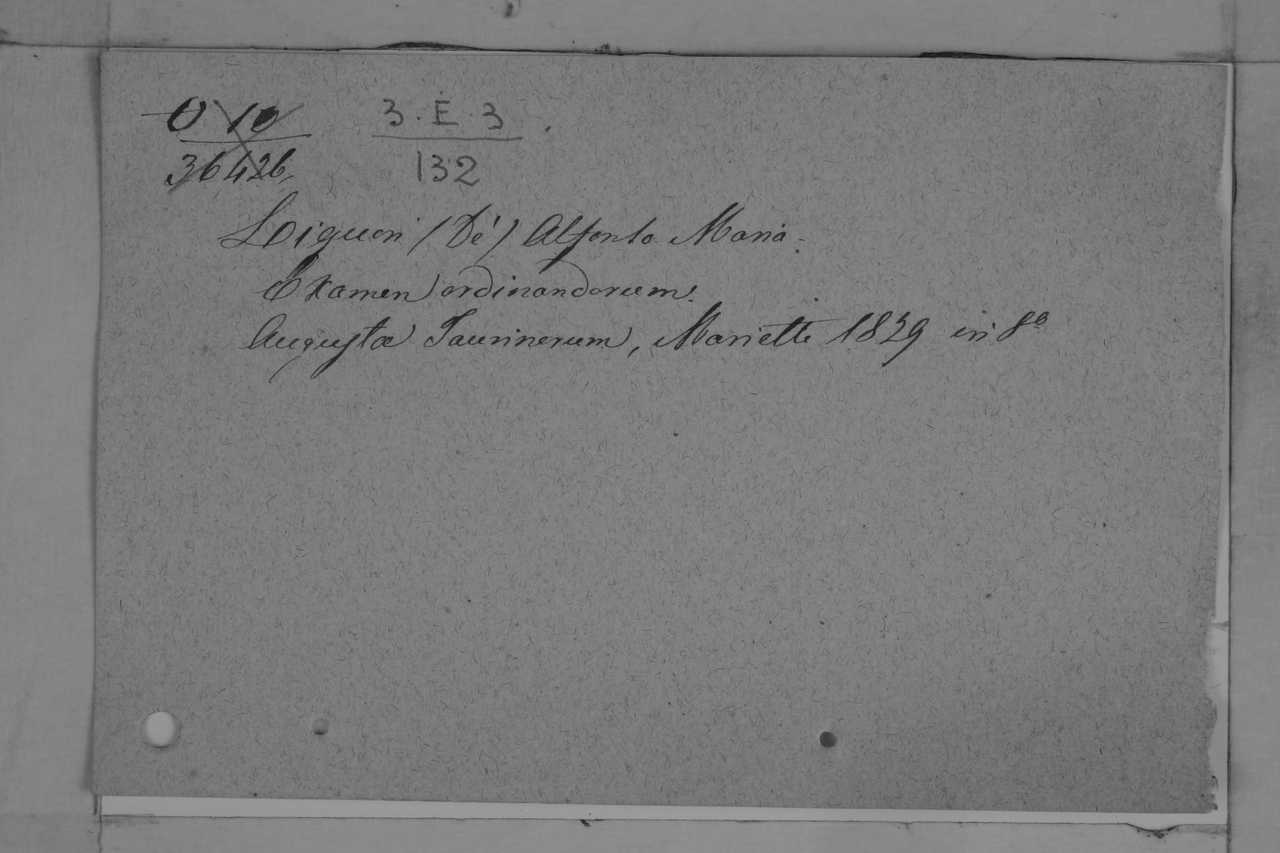 O 10 3. E. 3.
36426 132
Liguori (De') Alfonso Maria.
Examen ordinandorum.
Augustae Taurinorum, Marietti 1839 in 8º